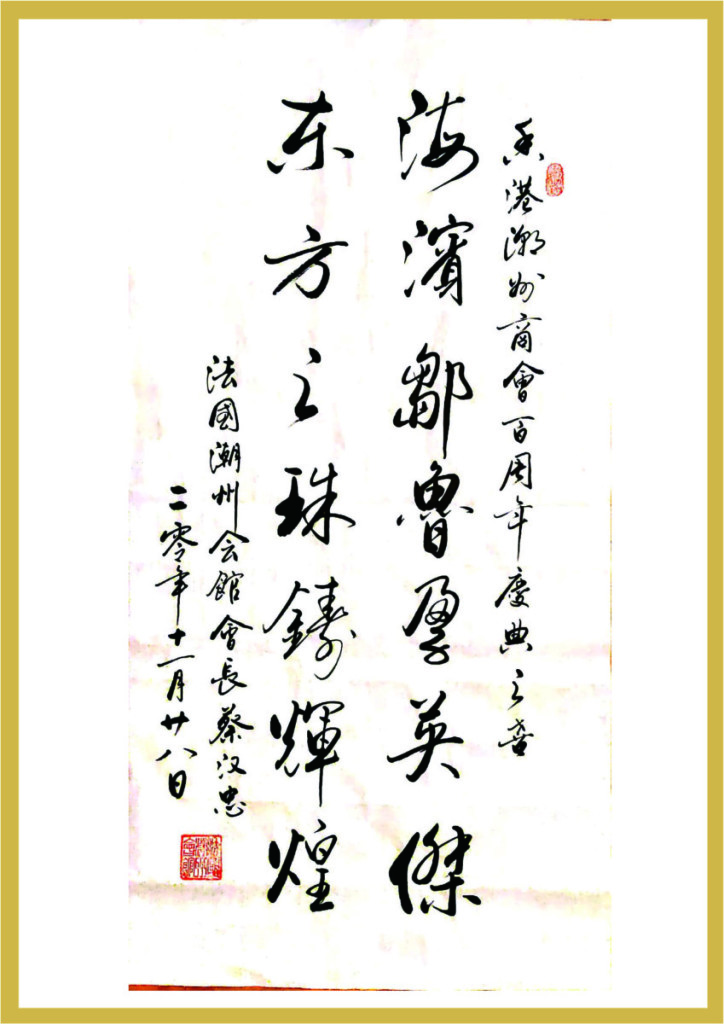 香港潮州商會百周年慶典之喜
海濱鄒魯孕英傑
东方之珠鑄輝煌
法國潮州会館會長蔡汉忠
二零年十一月廿八日